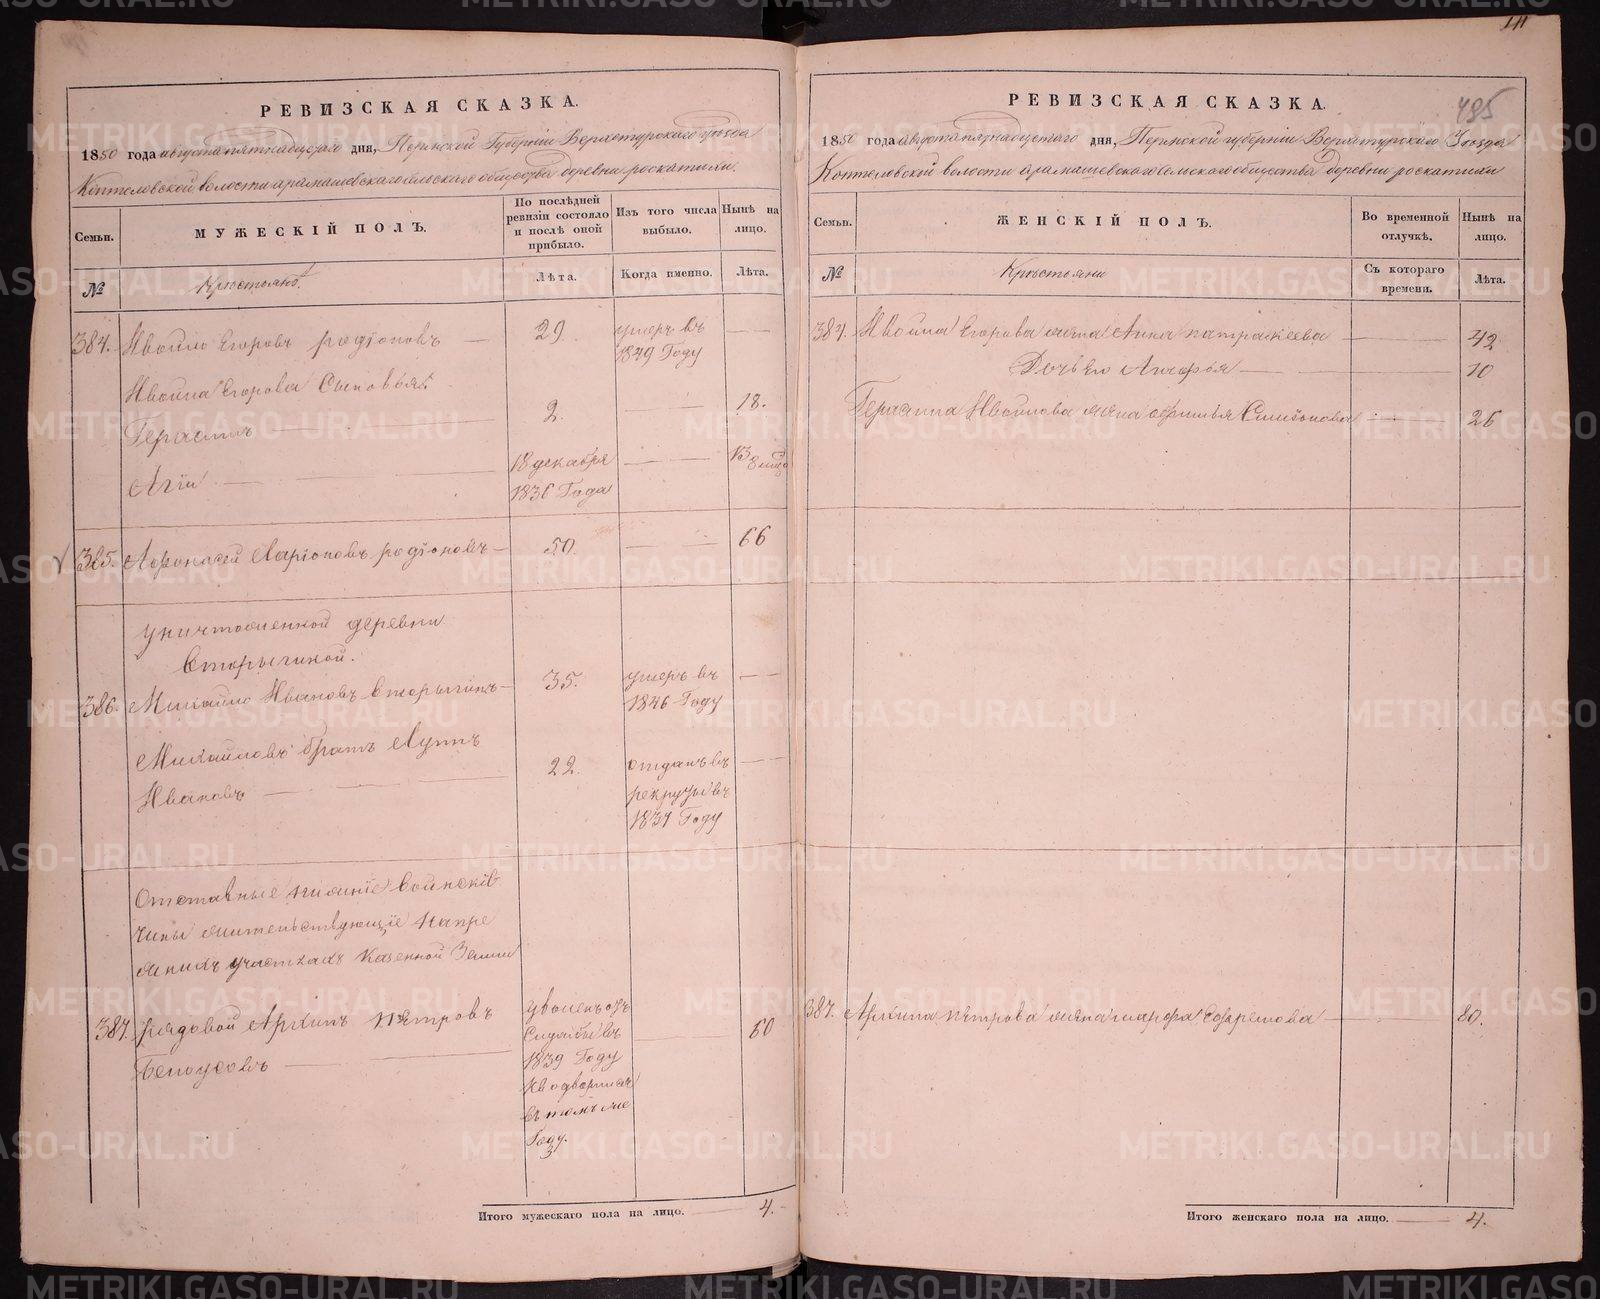 РЕВИЗСКАЯ СКАЗКА.
1850 года августа пятнадцатаго дня, Пермской Губерніи Верхотурскаго уѣзда
Коптеловской волости арамашевскаго сельскаго общества деревни роскатихи.
Семьи.
МУЖЕСКІЙ ПОЛЪ.
По послѣдней ревизіи состояло и послѣ оной прибыло.
Изъ того числа выбыло.
Нынѣ на лицо.
№
Крестьянъ.
Лѣта.
Когда именно.
Лѣта.
384. Ивойло Егоровъ родіоновъ 29. умеръ въ 1849 Году
Ивойла Егорова Сыновья
Герасимъ 2. 18.
18 декабря 1836 Года 13
385. Афонасей Ларіоновъ родіоновъ 50. 66
уничтоженной деревни
Вторыгиной.
386. Михайло Ивановъ вторыгинъ 35. умеръ въ 1846 Году
Михайловъ братъ Лупъ
Ивановъ 22. отданъ въ рекруты въ 1837 Году
Отставные нижніе воинскіе
чины жительствующіе напре
жнихъ участкахъ Казенной Земли
387. рядовой Архипъ петровъ
Белоусовъ
уволенъ отъ
Службы въ
1839 Году
въ томъ же
Году.
60
Итого мужескаго пола на лицо. 4.
485
РЕВИЗСКАЯ СКАЗКА.
1850 года августа пятнадцатаго дня, Пермской губерніи Верхотурскаго Уѣзда
Коптеловской волости арамашевскаго сельскаго общества деревни роскатихи
Семьи.
ЖЕНСКІЙ ПОЛЪ.
Во временной отлучкѣ.
Нынѣ на лицо.
№
Крестьяни
Съ котораго времени.
Лѣта.
384. Ивойла Егорова жена Анна патракеева 42
Дочь Его Агафья 10
Герасима Ивойлова жена Офимья Симіонова 26
387. Архипа петрова жена марфа 60.
Итого женскаго пола на лицо. 4.
METRIKI.GASO-URAL.RU